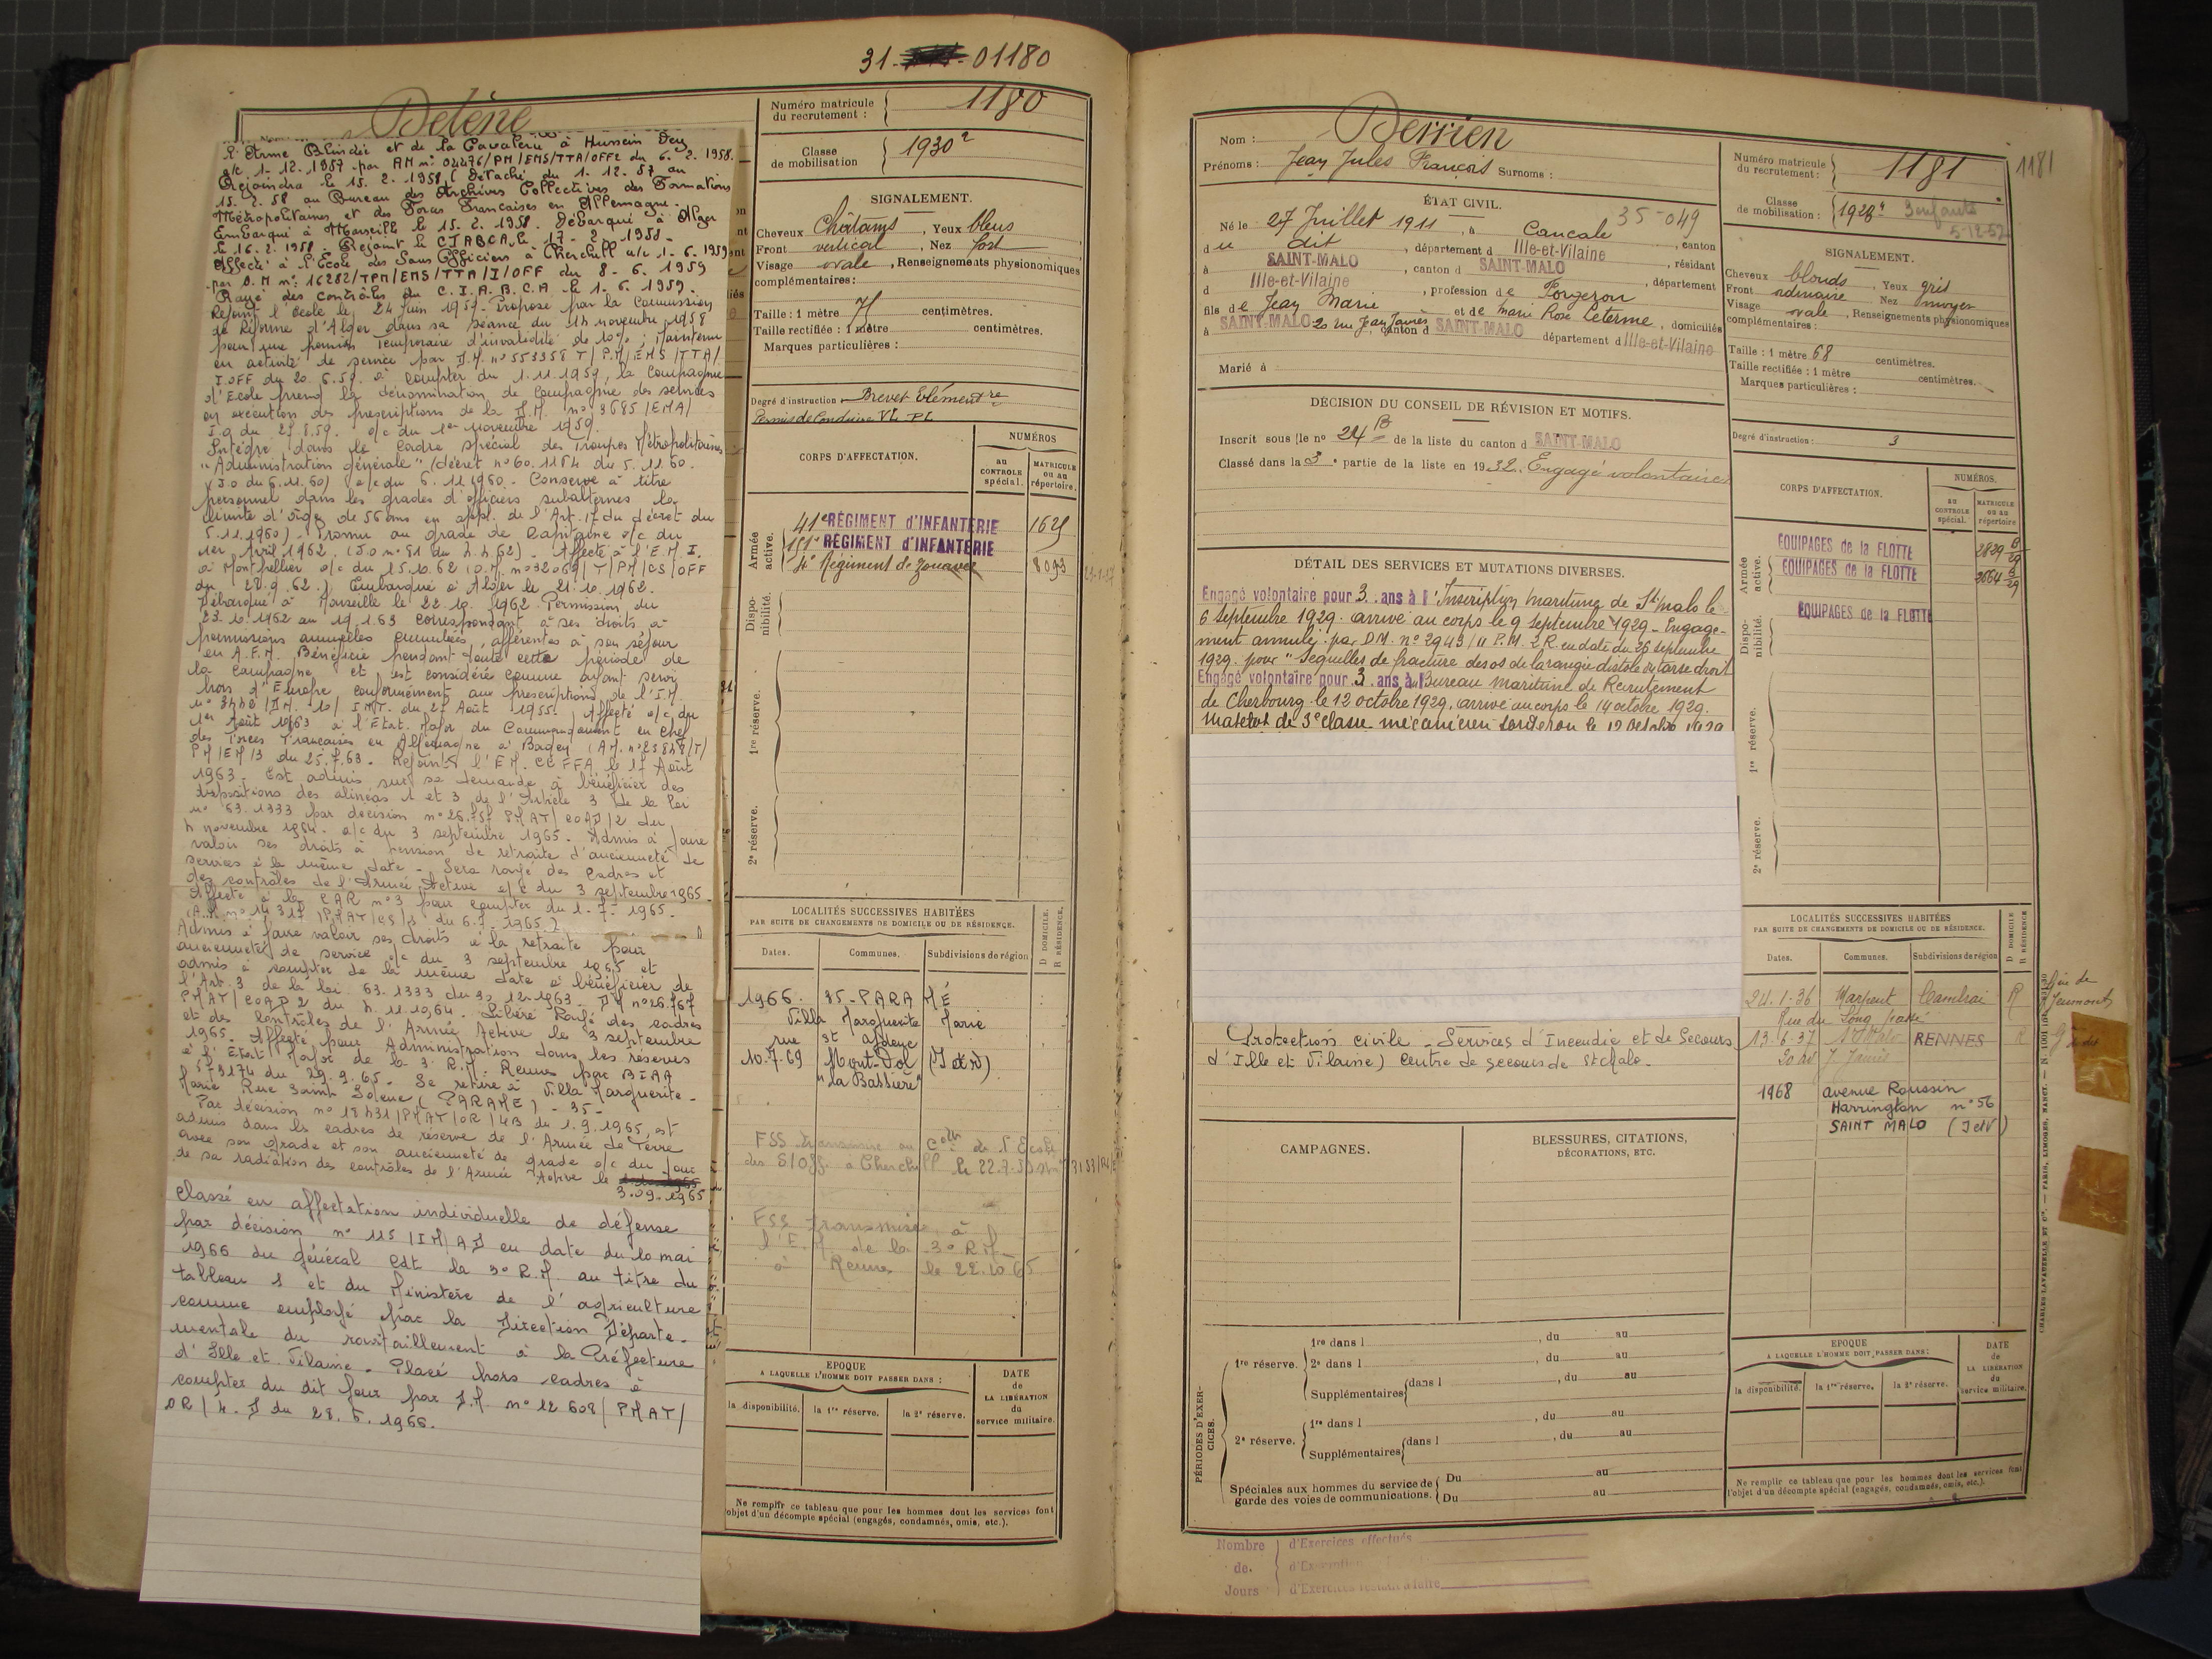 31- 01180
Belène
l'Arme Blindée et de la Cavalerie à Hussein Dey
a/c 1-12.1957 par AM n° 04476/PM/EMS/TTA/OFF2 du 6.2.1958.
Rejoindra le 15.2.1958 (Détaché du 1.12.57 au
15.2.58 au Bureau des Archives Collectives des Formations
Métropolitaines et des Forces Françaises en Allemagne.
Embarqué à Marseille le 15.2.1958. Débarqué à Alger
le 16.2.1958. Rejoint le CIABCA le 17-2-1958-
Affecté à l'Ecole des Sous Officiers à Cherchell a/c 1-6-1959
par O.M n° 16282/TPM/EMS/TTA/I/OFF du 8-6.1959
Rayé des contrôles du C.I.A.B.C.A le 1.6.1959.
Rejoint l'école le 24 Juin 1959. Proposé par la Commission
de Réforme d'Alger dans sa séance du 14 novembre 1958
pour une pension Temporaire d'invalidité de 10% ; Maintenu
en activité de service par D.M. n° 553358 T/P.M/EMS/TTA/
I.OFF du 20.6.59. à compter du 1.11.1959, la Compagnie
d'Ecole prend la dénomination de Compagnie des services
en exécution des prescriptions de la D.M. n° 3685/EMA/
I.O du 27.8.59. a/c du 1er novembre 1959.
Intégré dans le Cadre spécial des Troupes Métropolitaines
"Administration générale" (décret n° 60.1184 du 5.11.60.
(J.O du 6.11.60) a/c du 6.11.1960 - Conserve à titre
personnel dans les grades d'officiers subalternes la
limite d'âge de 56 ans en appl. de l'Art. 17 du décret du
5.11.1960) - Promu au grade de Capitaine a/c du
1er Avril 1962. (J.O n° 81 du 4.4.62) - Affecté à l'E.M.I.
à Montpellier a/c du 15.10.62 (O.M. n° 32069/T/PM/CS/OFF
du 28.9.62.) Embarqué à Alger le 21.10.1962.
Débarqué à Marseille le 22.10.1962. Permission du
23.10.1962 au 19.1.63 correspondant à ses droits à
permissions annuelles cumulées, afférentes à son séjour
en A.F.N. Bénéficie pendant toute cette période de
la campagne et est considéré comme ayant servi
hors d'Europe conformément aux prescriptions de l'I.M.
du 27 Août 1955. Affecté a/c du
1er Août 1963 à l'Etat. Major du Commandant en Chef
des Forces Françaises en Allemagne à Baden (AM. n° 25848/T/
PM/EM/3 du 25.7.63 - Rejoint l'EM. CCFFA le 17 Août
1963. Est admis sur sa demande à bénéficier des
dispositions des alinéas 1 et 3 de l'Article 3 de la loi
n° 63.1333 par décision n° 26.767 PMAT/EOAD/2 du
4 novembre 1964. a/c du 3 septembre 1965. Admis à faire
valoir ses droits à pension de retraite d'ancienneté de
services à la même date - Sera rayé des cadres et
des contrôles de l'Armée Active a/c du 3 septembre 1965.
Affecté à la CAR n° 3 pour compter du 1.7-1965.
(A.M. n° 14317 /PMAT/CS/3 du 6.7.1965.)
Admis à faire valoir ses droits à la retraite pour
ancienneté de service a/c du 3 septembre 1965 et
admis à compter de la même date à bénéficier de
l'Art. 3 de la loi 63.1333 du 30.12.1963. DM n° 26.767
PMAT/EOAD 2 du 4.11.1964. Libéré Rayé des cadres
et des Contrôles de l'Armée Active le 3 septembre
1965. Affecté pour Administration dans les réserves
à l'Etat Major de la 3° R.M. Rennes par BIAA
573174 du 29.9.65. Se retire à Villa Marguerite-
Marie Rue Saint Solenc (PARAME) - 35 -
Par décision n° 18431/PMAT/OR/4B du 1.9.1965, est
admis dans les cadres de réserve de l'Armée de Terre
avec son grade et son ancienneté de grade a/c du jour
de sa radiation des contrôles de l'Armée Active le
3.09.1965
Classé en affectation individuelle de défense
par décision n° 115/IM/AD en date du 10 mai
1966 du général Cdt la 3° R.M. au titre du
tableau 1 et du Ministère de l'agriculture
comme employé par la Direction Départe-
mentale du ravitaillement à la Préfecture
d'Ille et Vilaine. Placé hors cadres à
compter du dit jour par D.M. n° 12608/PMAT/
OR/4.D du 28.6.1966.
Numéro matricule du recrutement : 1180
Classe de mobilisation 1930²
SIGNALEMENT.
Cheveux Châtains, Yeux bleus
Front vertical, Nez fort
Visage ovale, Renseignements physionomiques
complémentaires :
Taille : 1 mètre 71 centimètres.
Taille rectifiée : 1 mètre centimètres.
Marques particulières :
Degré d'instruction Brevet Elémentre
Permis de Conduire VL-PL
CORPS D'AFFECTATION.
NUMÉROS
au CONTROLE spécial.
MATRICULE ou au répertoire.
Armée active.
41e RÉGIMENT d'INFANTERIE 1625
151e RÉGIMENT d'INFANTERIE
4e Régiment de Zouaves 8093
Disponibilité.
1re réserve.
2e réserve.
LOCALITÉS SUCCESSIVES HABITÉES
PAR SUITE DE CHANGEMENTS DE DOMICILE OU DE RÉSIDENCE.
Dates. Communes. Subdivisions de région
D DOMICILE.
R RÉSIDENCE.
1966. 35-PARAMÉ
Villa Marguerite Marie
rue St
10.7.69 Mont-Dol (I et V)
"la Bassière"
FSS transmise au Colt de l'Ecole
des S/Off. à Cherchell le 22.7.59
FSS transmise à
l'E.M. de la 3° R.M-
à Rennes le 22.10.65
EPOQUE
A LAQUELLE L'HOMME DOIT PASSER DANS :
DATE de LA LIBÉRATION du service militaire.
la disponibilité. la 1re réserve. la 2e réserve.
Ne remplir ce tableau que pour les hommes dont les services font
l'objet d'un décompte spécial (engagés, condamnés, omis, etc.).
Nom : Berrien
Prénoms : Jean Jules François Surnoms :
ÉTAT CIVIL.
35-049
Né le 27 Juillet 1911, à Cancale, canton
du dit, département d Ille-et-Vilaine, résidant
à SAINT-MALO, canton d SAINT-MALO, département
d Ille-et-Vilaine, profession de Forgeron
fils de Jean Marie et de Marie Rose Leterme, domiciliés
à SAINT-MALO 20 rue Jean Jaurès, canton d SAINT-MALO département d Ille-et-Vilaine
Marié à
DÉCISION DU CONSEIL DE RÉVISION ET MOTIFS.
Inscrit sous le n° 24 B de la liste du canton d SAINT-MALO
Classé dans la 3e partie de la liste en 1932. Engagé volontaire
DÉTAIL DES SERVICES ET MUTATIONS DIVERSES.
Engagé volontaire pour 3 ans à l'Inscription maritime de St Malo le
6 Septembre 1929. arrivé au corps le 9 septembre 1929 - Engage-
ment annulé par D.M. n° 2943/11 P.M. 2 R. en date du 26 septembre
1929. pour "Sequelles de fracture des os de la rangée distale du tarse droit
Engagé volontaire pour 3 ans à Bureau Maritime de Recrutement
de Cherbourg le 12 octobre 1929, arrivé au corps le 14 octobre 1929.
Matelot de 3e classe mécanicien forgeron le 12 Octobre 1929
Protection civile - Services d'Incendie et de Secours
d'Ille et Vilaine) Centre de secours de St Malo.
CAMPAGNES.
BLESSURES, CITATIONS, DÉCORATIONS, ETC.
PÉRIODES D'EXERCICES.
1re réserve. 1re dans l , du au
2e dans l , du au
Supplémentaires dans l , du au
2e réserve. 1re dans l , du au
Supplémentaires dans l , du au
Spéciales aux hommes du service de garde des voies de communications. Du au
Du au
Nombre de Jours
d'Exercices effectués
d'Exercices restant à faire
Numéro matricule du recrutement : 1181
1181
Classe de mobilisation : 3 enfants
5-12-52
SIGNALEMENT.
Cheveux blonds, Yeux gris
Front ordinaire Nez moyen
Visage ovale, Renseignements physionomiques
complémentaires :
Taille : 1 mètre 68 centimètres.
Taille rectifiée : 1 mètre centimètres.
Marques particulières :
Degré d'instruction : 3
CORPS D'AFFECTATION.
NUMÉROS.
au CONTROLE spécial.
MATRICULE ou au répertoire
Armée active.
EQUIPAGES de la FLOTTE 2829 B/29
EQUIPAGES de la FLOTTE 3664 B/29
Disponibilité.
EQUIPAGES de la FLOTTE
1re réserve.
2e réserve.
LOCALITÉS SUCCESSIVES HABITÉES
PAR SUITE DE CHANGEMENTS DE DOMICILE OU DE RÉSIDENCE.
Dates. Communes. Subdivisions de région
D DOMICILE
R RÉSIDENCE
24.1.36 Marpent Cambrai R
Rue du Long
13.6.37 St Malo RENNES R
20 rue J Jaurès
1968 avenue Roussin
Harrington n° 56
SAINT MALO (I et V)
EPOQUE
A LAQUELLE L'HOMME DOIT PASSER DANS :
DATE de LA LIBÉRATION du service militaire.
la disponibilité. la 1re réserve. la 2e réserve.
Ne remplir ce tableau que pour les hommes dont les services font
l'objet d'un décompte spécial (engagés, condamnés, omis, etc.).
CHARLES-LAVAUZELLE ET Cie. — PARIS, LIMOGES, NANCY.